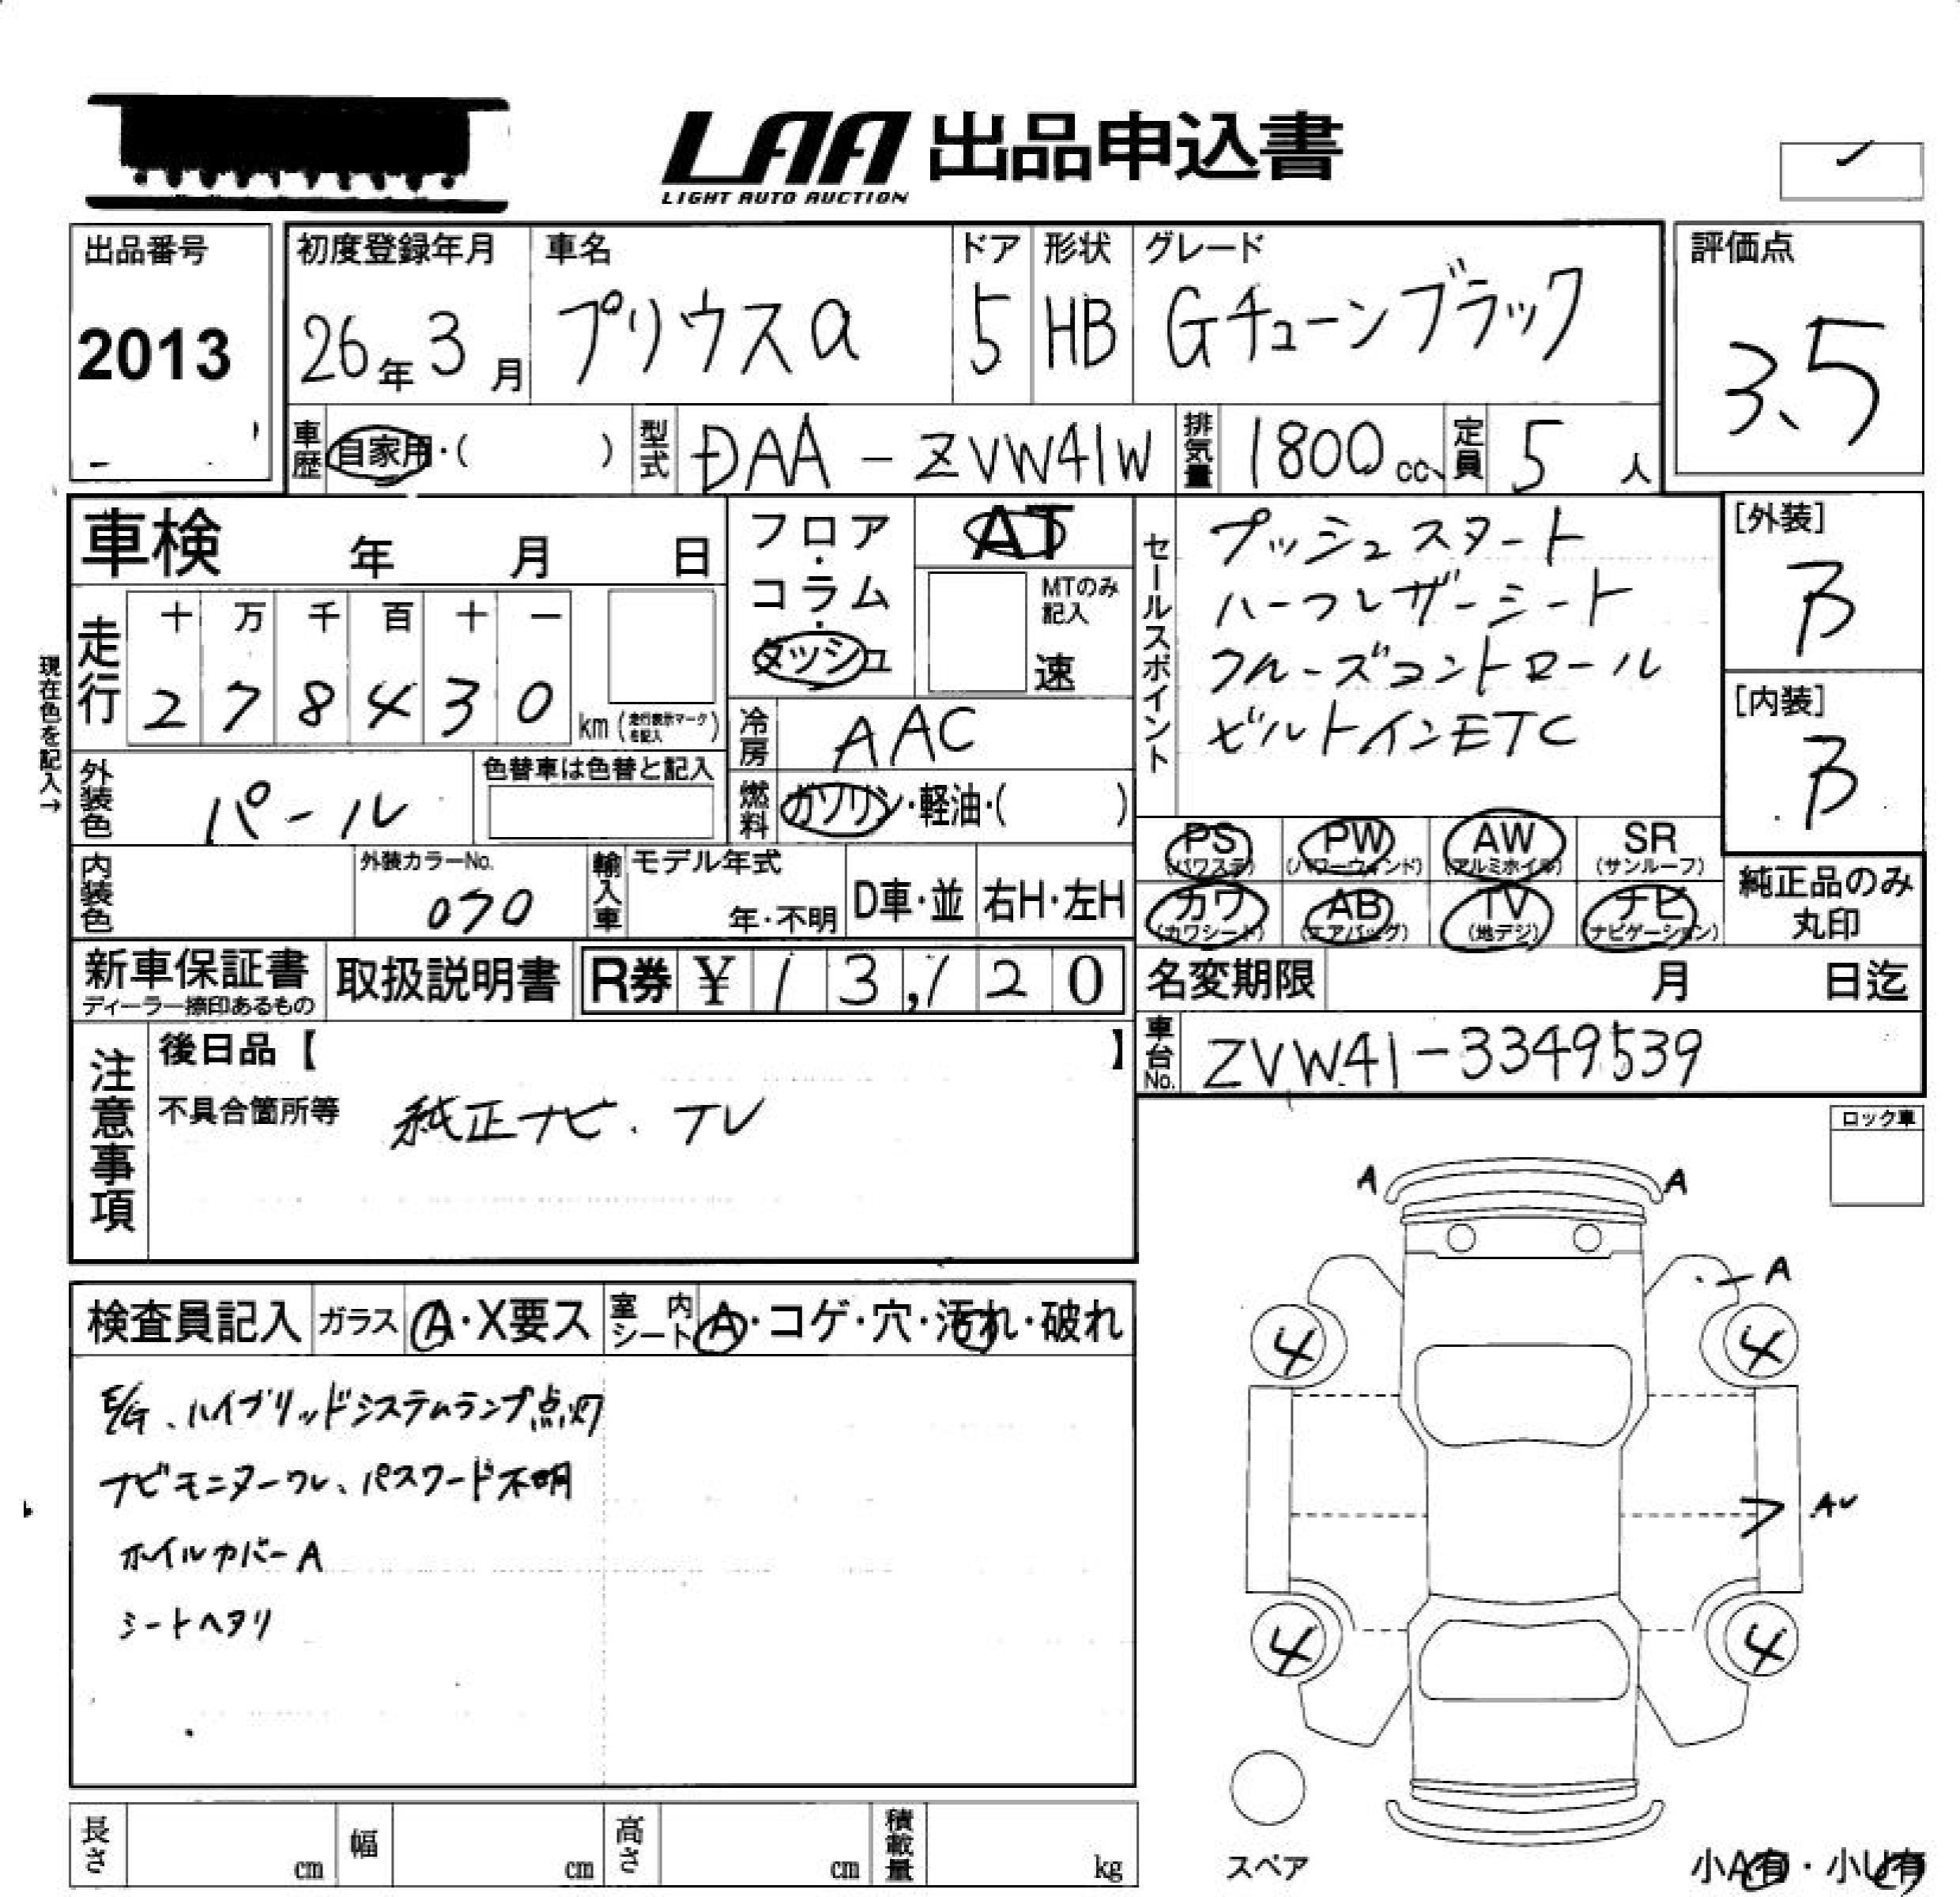 LAA 出品申込書
LIGHT AUTO AUCTION
出品番号
2013
初度登録年月
26年3月
車名
プリウスα
ドア
5
形状
HB
グレード
Gチューンブラック
評価点
3.5
車歴 自家用・( )
型式 DAA-ZVW41W
排気量 1800cc
定員 5人
車検 年 月 日
フロア・コラム・ダッシュ
AT
MTのみ記入
速
セールスポイント
プッシュスタート
ハーフレザーシート
クルーズコントロール
ビルトインETC
[外装]
B
[内装]
B
現在色を記入→
走行
十 万 千 百 十 一
2 7 8 4 3 0
km(走行表示マークを記入)
冷房 AAC
外装色 パール
色替車は色替と記入
燃料 ガソリン・軽油・( )
PS (パワステ) PW (パワーウィンド) AW (アルミホイル) SR (サンルーフ)
カワ (カワシート) AB (エアバッグ) TV (地デジ) ナビ (ナビゲーション)
純正品のみ丸印
内装色
外装カラーNo.
070
輸入車 モデル年式
年・不明
D車・並
右H・左H
新車保証書
ディーラー捺印あるもの
取扱説明書
R券 ¥13,120
名変期限 月 日迄
車台No. ZVW41-3349539
注意事項
後日品【 】
不具合箇所等 純正ナビ.TV
ロック車
検査員記入 ガラス A・X要ス 室内シート A・コゲ・穴・汚れ・破れ
E/G、ハイブリッドシステムランプ点灯
ナビモニターワレ、パスワード不明
ホイルカバーA
シートヘタリ
A A
A
4 4
AU
4 4
スペア
小A有・小U有
長さ cm 幅 cm 高さ cm 積載量 kg